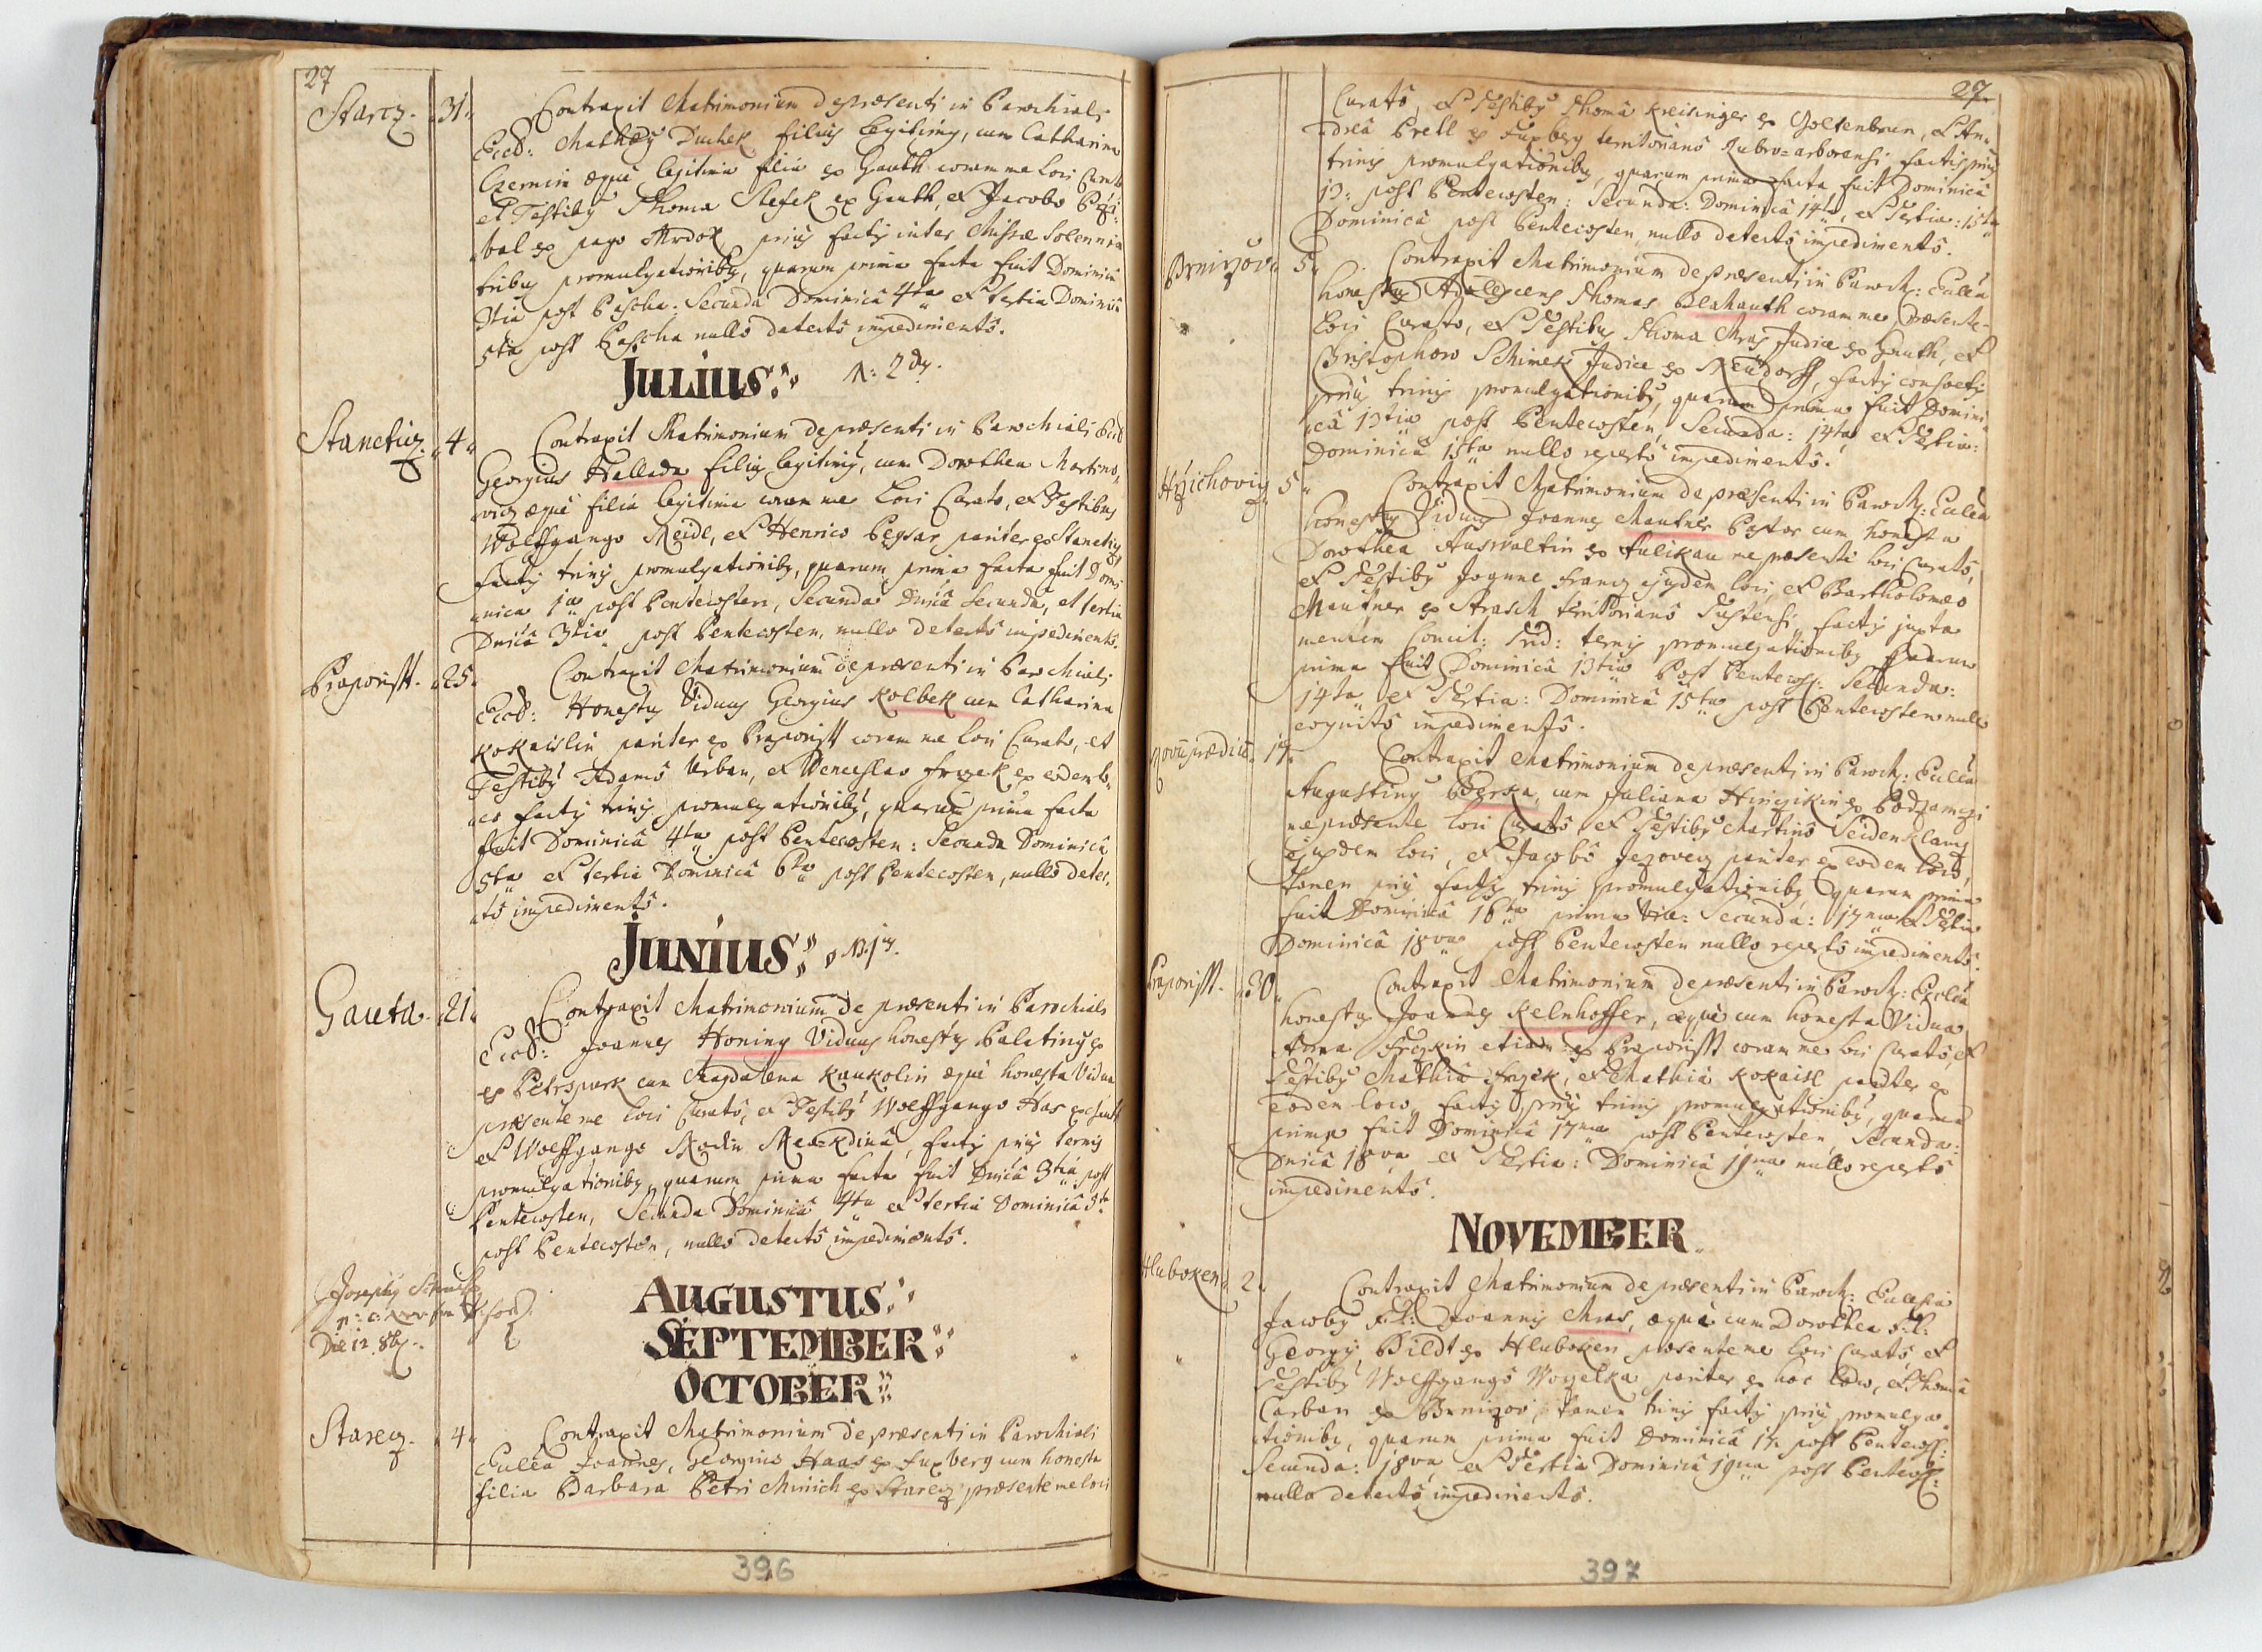 27
Starcz. 31.
Contraxit Matrimonium de præsenti in Parochiali
Eccl: Mathæg Duchek filiug legitimg, cum Catharina
Czernin æque legitima filia ex Gauth coram me loci Curato
et Testibg Thoma Stefek ex Gauth, et Jacobo
bal ex pago Mrdok, priug factis inter Missæ Solennia
tribug promulgationibg, quarum prima facta fuit Dominica
3tia post Pascha: Secunda Dominica 4ta et tertia Dominica
5ta post Pascha nullo detecto impedimento.
JULIUS: N: 2 dg.
Staneticz. 4.
Contraxit Matrimonium de præsenti in Parochiali Eccl
Georgius Hallada filiug legitimg, cum Dorothea Martino,
wicz æque filia legitima coram me loci Curato, et Testibus
Wolffgango Reidl, et Henrico Begsar pariter ex Staneticz
factis trinis promulgationibg, quarum prima facta fuit Domi
nica 1a post Pentecosten, Secunda Dnica Secunda, et tertia
Dnica 3tia post Pentecosten, nullo detecto impedimento.
Praporischt. 25.
Contraxit Matrimonium de præsenti in Parochiali
Eccl: Honestg Viduug Georgius Kolbek cum Catharina
Kokaislin pariter ex Praporischt coram me loci Curato, et
Testibg Adamo Urban, et Wenceslao Frczek ex eodem lo,
co factis trinis promulgationibg, quarum prima facta
fuit Dominica 4ta post Pentecosten: Secunda Dominica
5ta et tertia Dominica 6ta post Pentecosten, nullo detec,
to impedimento.
JUNIUS: N: 1g.
Gauta. 21.
Contraxit Matrimonium de præsenti in Parochiali
Eccl: Joannes Honing Viduug honestg Palating ex
ex Petrspurk cum Magdalena Kaukolin æque honesta Vidua
præsente me loci Curato, et Testibg Wolffgango Has ex Gauth
et Wolffgango Skodu factis priug ternis
promulgationibg, quarum prima facta fuit Dnica 3tia post
Pentecosten, Secunda Dominica 4ta et tertia Dominica 5ta
post Pentecosten, nullo detecto impedimento.
Josephg
Die 12 8bg.
AUGUSTUS:
SEPTEMBER:
OCTOBER:
Starecz. 4.
Contraxit Matrimonium de præsenti in Parochiali
Ecclia Joannes, Georgius Haas ex Fuxberg cum honesta
filia Barbara Petri Minich ex Starecz præsente me loci
396
27.
Curato, et Testibg Thoma Kreisinger ex Goltenbrun, et An,
drea Prell ex Fuxberg territoriano Rubro=arborensi factis priug
trinis promulgationibg, quarum prima facta fuit Dominica
13: post Pentecosten: Secunda: Dominica 14ta, et Tertia: 15ta
Dominica post Pentecosten nullo detecto impedimento.
Prnizov. 5.
Contraxit Matrimonium de præsenti in Paroch: Ecclia
honestg Adolescens Thomas Blahauth coram me Præsente
loci Curato, et Testibg Thoma Mras Judice ex Gauth, et
Christophoro Schimek Judice ex Neudorff, factis consvetis
priug trinis promulgationibg, quarum prima fuit Domini,
ca 13tia post Pentecosten, Secunda: 14ta et Tertia:
Dominica 15ta nullo reperto impedimento.
Hrzichovicz 5.
Contraxit Matrimonium de præsenti in Paroch: Ecclia
honestg Viduug Joannes Mautner Pastor cum honesta
Dorothea Auswaltin ex Fulikau me præsente loci Curato,
et Testibg Joanne Francz ejusdem loci, et Bartholomæo
Mautner ex Strasch territoriano Tustensi factis juxta
mentem Concil: Trid: ternis promulgationibg quarum
prima fuit Dominica 13tia Post Pentecost: Secunda:
14ta et Tertia: Dominica 15ta post Pentecosten nullo
cognito impedimento.
Novupraedio. 19.
Contraxit Matrimonium de præsenti in Paroch: Ecclia
Augusting Berka, cum Juliana ex Podzamczi
me præsente loci Curato et Testibg Martino Seidenklang
ejusdem loci, et Jacobo Jezovecz pariter ex eodem loco,
tamen priug factis trinis promulgationibg quarum prima
fuit Dominica 16ta prima vice: Secunda: 17ma et Tertia
Dominica 18va post Pentecosten nullo reperto impedimento.
Praporischt. 30.
Contraxit Matrimonium de præsenti in Paroch: Ecclia
honestg Joannes Kelnhoffer, æque cum honesta Vidua
Anna Frczkin etiam ex Praporischt coram me loci Curato, et
Testibg Mathia Frczek, et Mathia Kokaisl pariter ex
eodem loco, factis priug trinis promulgationibg, quarum
prima fuit Dominica 17ma post Pentecosten, Secunda:
Dnica 18va et Tertia: Dominica 19na nullo reperto
impedimento.
NOVEMBER.
Hluboken. 2.
Contraxit Matrimonium de præsenti in Paroch: Ecclesia
Jacobg Fil: Joannis Mras, æque cum Dorothea Fil:
Georgij Bildt ex Hluboken præsente me loci Curato, et
Testibg Wolffgango Wogelka pariter ex hoc loco, et Thoma
Carban ex Prnizov, tamen trinis factis priug promulga,
tionibg, quarum prima fuit Dominica 17. post Pentecost:
Secunda: 18va, et Tertia Dominica 19na post Pentecost:
nullo detecto impedimento.
397